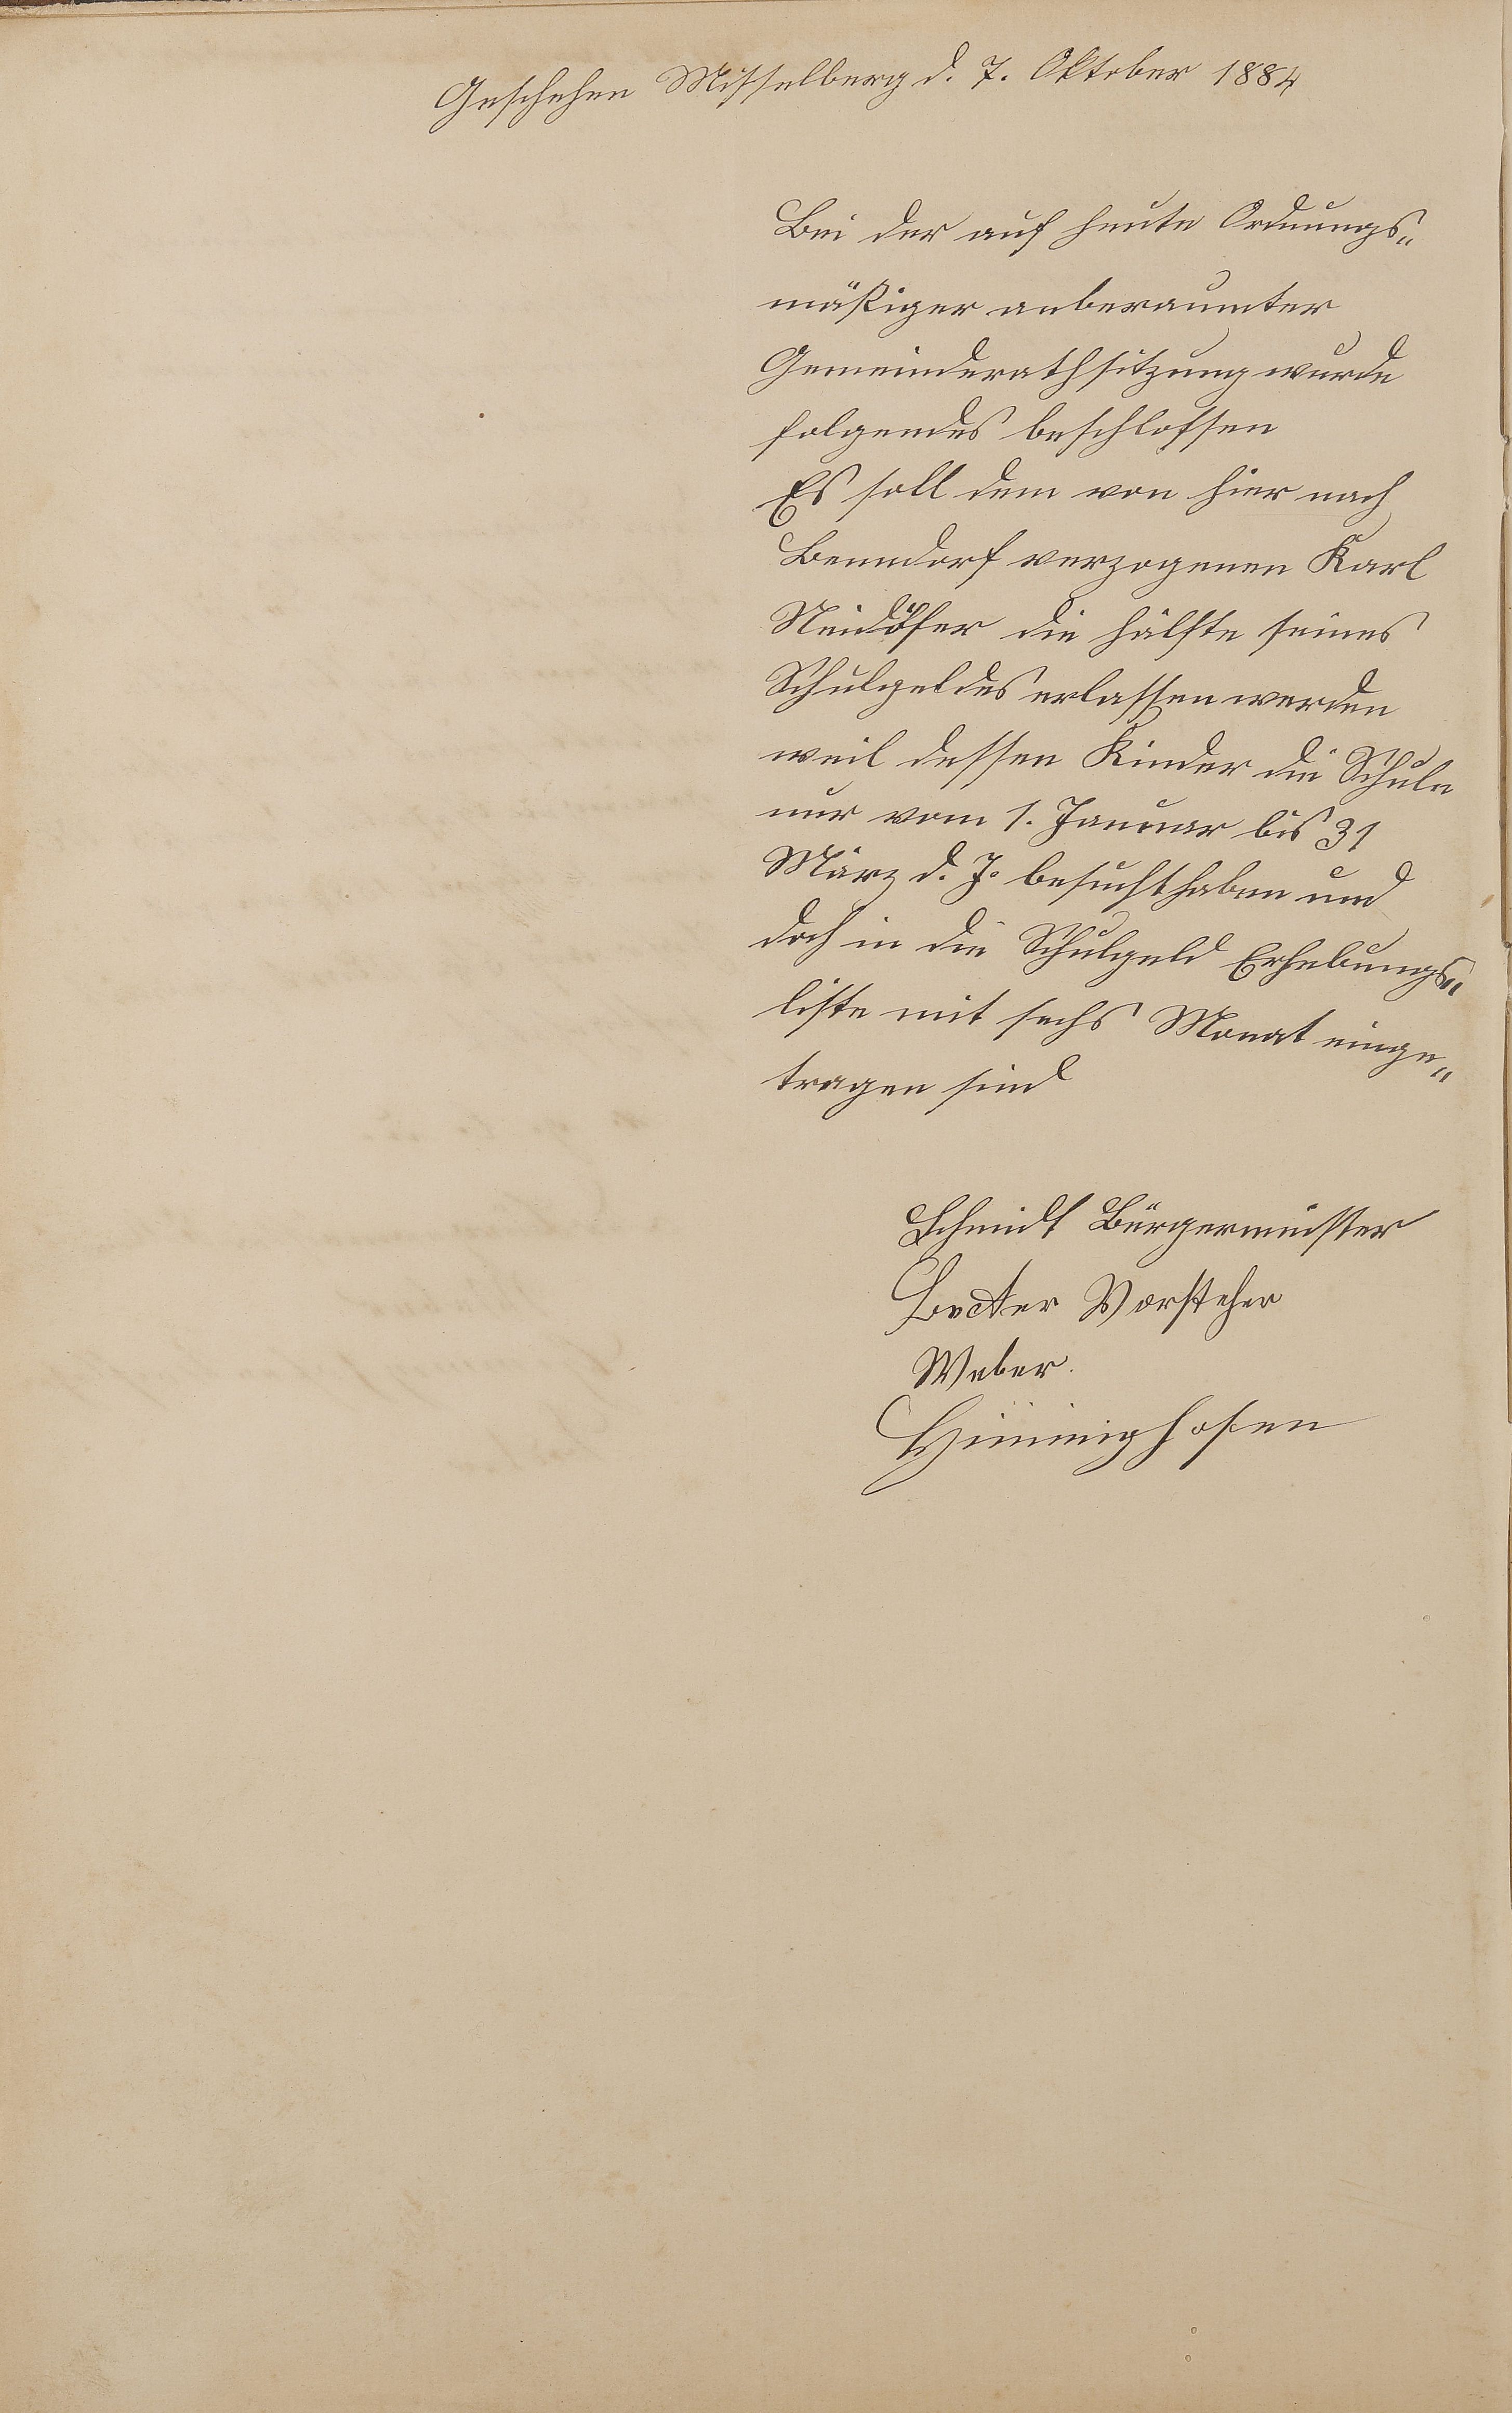 Geschehen Misselberg d. 7. Oktober 1884
Bei der auf heute Ordnungs„
mäßiger anberaumter
Gemeinderathsitzung wurde
folgendes beschlossen
Es soll dem von hier nach
Benndorf verzogenen Karl
Neidöfer die hälfte seines
Schulgeldes erlassen werden
weil dessen Kinder die Schule
nur vom 1. Januar bis 31
März d. J. besucht haben und
doch in die Schulgeld Erhebungs„
liste mit sechs Monat einge„
tragen sind
Schmidt Bürgermeister
Vorsteher
Weber.
Himmighofen